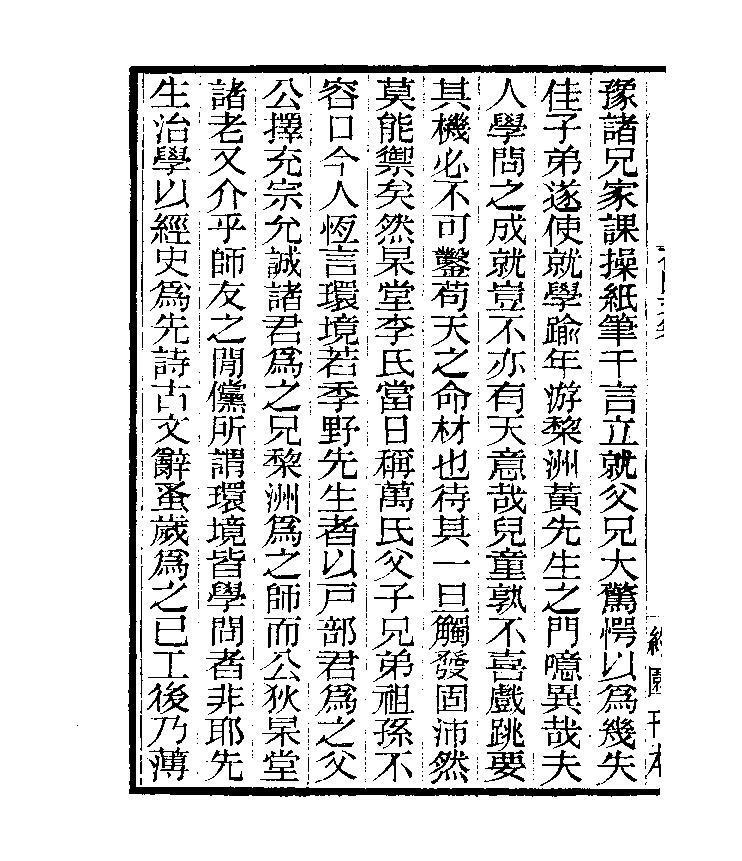 豫諸兄家課操紙筆千言立就父兄大驚愕以爲幾失
佳子弟遂使就學踰年游棃洲黃先生之門噫異哉夫
人學問之成就豈不亦有天意哉兒童孰不喜戲跳要
其機必不可鑿苟天之命材也待其一旦觸發固沛然
莫能禦矣然杲堂李氏當日稱萬氏父子兄弟祖孫不
容口今人恆言環境若季野先生者以戸部君爲之父
公擇充宗允誠諸君爲之兄棃洲爲之師而公狄杲堂
諸老又介乎師友之閒儻所謂環境皆學問者非耶先
生治學以經史爲先詩古文辭蚤歲爲之已工後乃薄
園刊本